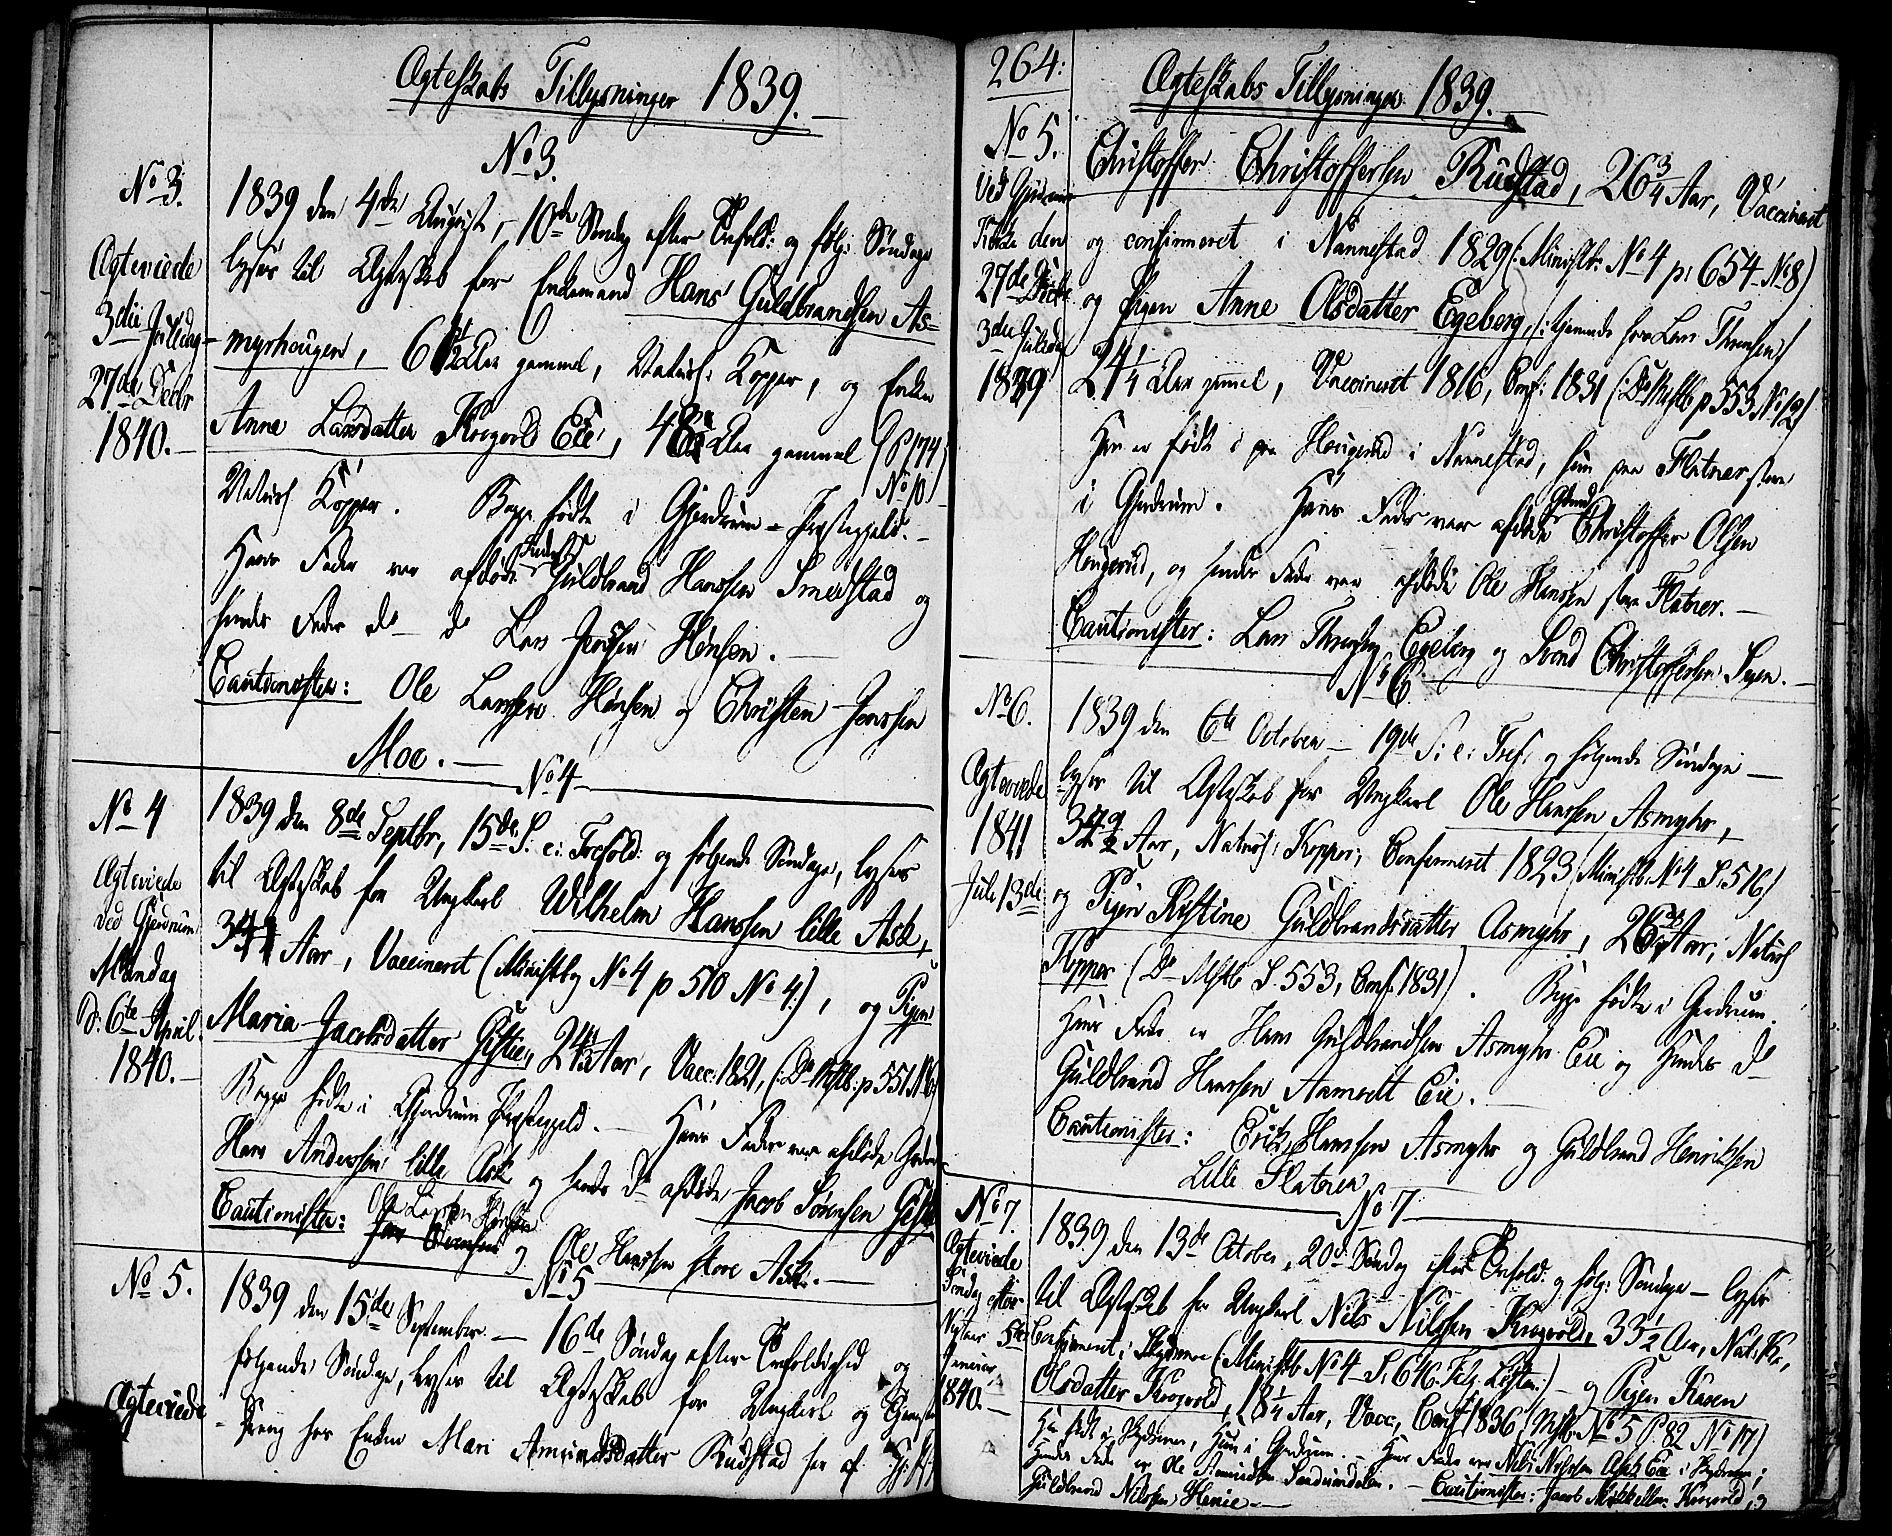 Ægteskabs Tillysninger 1839.
No 3.
No 3.
Ægteviede
3die Juledag
27de Decbr
1840.
1839 den 4de August, 10de Søndag efter Trefold: og følg: Søndage
lyses til Ægteskab for Enkemand Hans Guldbrandsen As-
myrhougen, Aar gammel, Naturl: Kopper, og Enken
Anne Larsdatter Krogvold Eie, Aar gammel (P 174
No 10)
Naturl Kopper. Begge fødte i Gjerdrum Præstegjeld.
Hans Fader var afdøde Guldbrand Hanssen Smedstad og
hendes Fader do do Lars Jenssen Hønsen.
Cautionister: Ole Larssen Hønsen og Christen Jenssen
Moe.
No 4
No 4
Ægteviede
ved Gjerdrum
Mandag
D: 6te April
1840.
1839 den 8de Septbr, 15de S. e: Trefold: og følgende Søndage, lyses
til Ægteskab for Ungkarl Wilhelm Hanssen lille Ask,
Aar, Vaccineret (Ministbog No 4 p 510 No 4:), og Pigen
Maria Jacobsdatter Gistie, Aar, Vacc: 1821, (: Do Mstb: p 551 No 6)
Begge fødte i Gjerdrum Præstegjeld. Hans Fader var afdøde
Hans Anderssen lille Ask og hendes Do afdøde Jacob Sørensen
Cautionister: Ole Larssen Hønsen
og Ole Hanssen store Ask.
No 5
No 5.
Ægteviede
1839 den 15de September 16de Søndag efter Trefoldighed og
følgende Søndage, lyses til Ægteskab for Ungkarl og
Dreng hos Enken Mari Amundsdatter Rudstad her af
264:
Ægteskabs Tillysninger 1839.
No 5.
Ved Gjerdrum
Kirke den
27de Decbr
3die Juledag
1839
Christoffer Christoffersen Rudstad, 26 3/4 Aar, Vaccineret
og confirmeret i Nannestad 1829 (: Ministb: No 4 p: 654 No 8)
og Pigen Anne Olsdatter Egeberg, (: tjenende hos Lars Thronsen)
24 1/4 Aar gammel, Vaccineret 1816, Conf: 1831 (: Do Mstb p 553 No 12)
Han er født i paa Hougerud i Nannestad, hun paa Flatner store
i Gjerdrum. Hans Fader var afdøde Christoffer Olsen
Hougerud, og hendes Fader var afdøde Ole Hansen store Flatner.
Cautionister: Lars Thronsen Egeberg og Svend Christoffersen
No 6.
No 6.
Ægteviede
1841
Jule 13de
1839 den 6te October 19de S: e: Tref: og følgende Søndage
lyses til Ægteskab for Ungkarl Ole Hanssen Asmyhr,
Aar, Naturl: Kopper, Confirmeret 1823 (Ministb: No 4 S. 516)
og Pigen Kistine Guldbrandsdatter Asmyhr, Aar, Naturl
Kopper (Do Mstb S. 553, Conf: 1831). Begge fødte i Gjerdrum.
Hans Fader er Hans Guldbrandsen Asmyhr Eie og Hendes Do
Guldbrand Hanssen Aamodt Eie.
Cautionister: Erik Hanssen Asmyhr og Guldbrand Henriksen
Lille Flatner
No 7
No 7
Ægteviede
Søndag efter
Nytaar 5te
Januar
1840.
1839 den 13de October, 20de Søndag efter Trefold: og følg: Søndage lyses
til Ægteskab for Ungkarl Nils Nilssen Krogvold, 33 1/2 Aar, Nat: K:,
Confirmeret i (Ministb No 4 S: 646) og Pigen Karen
Olsdatter Krogvold, 18 1/4 Aar, Vacc, Conf 1836 (Mstb No 5 S. 82 No 17)
Han født i Hun i Gjerdrum. Hans Fader var Nils Nilssen Ask Eie i
Hendes Fader er Ole Amundsen Cautionister: Jacob Mikkelsen Krogvold, og
Guldbrand Nilssen Henie.